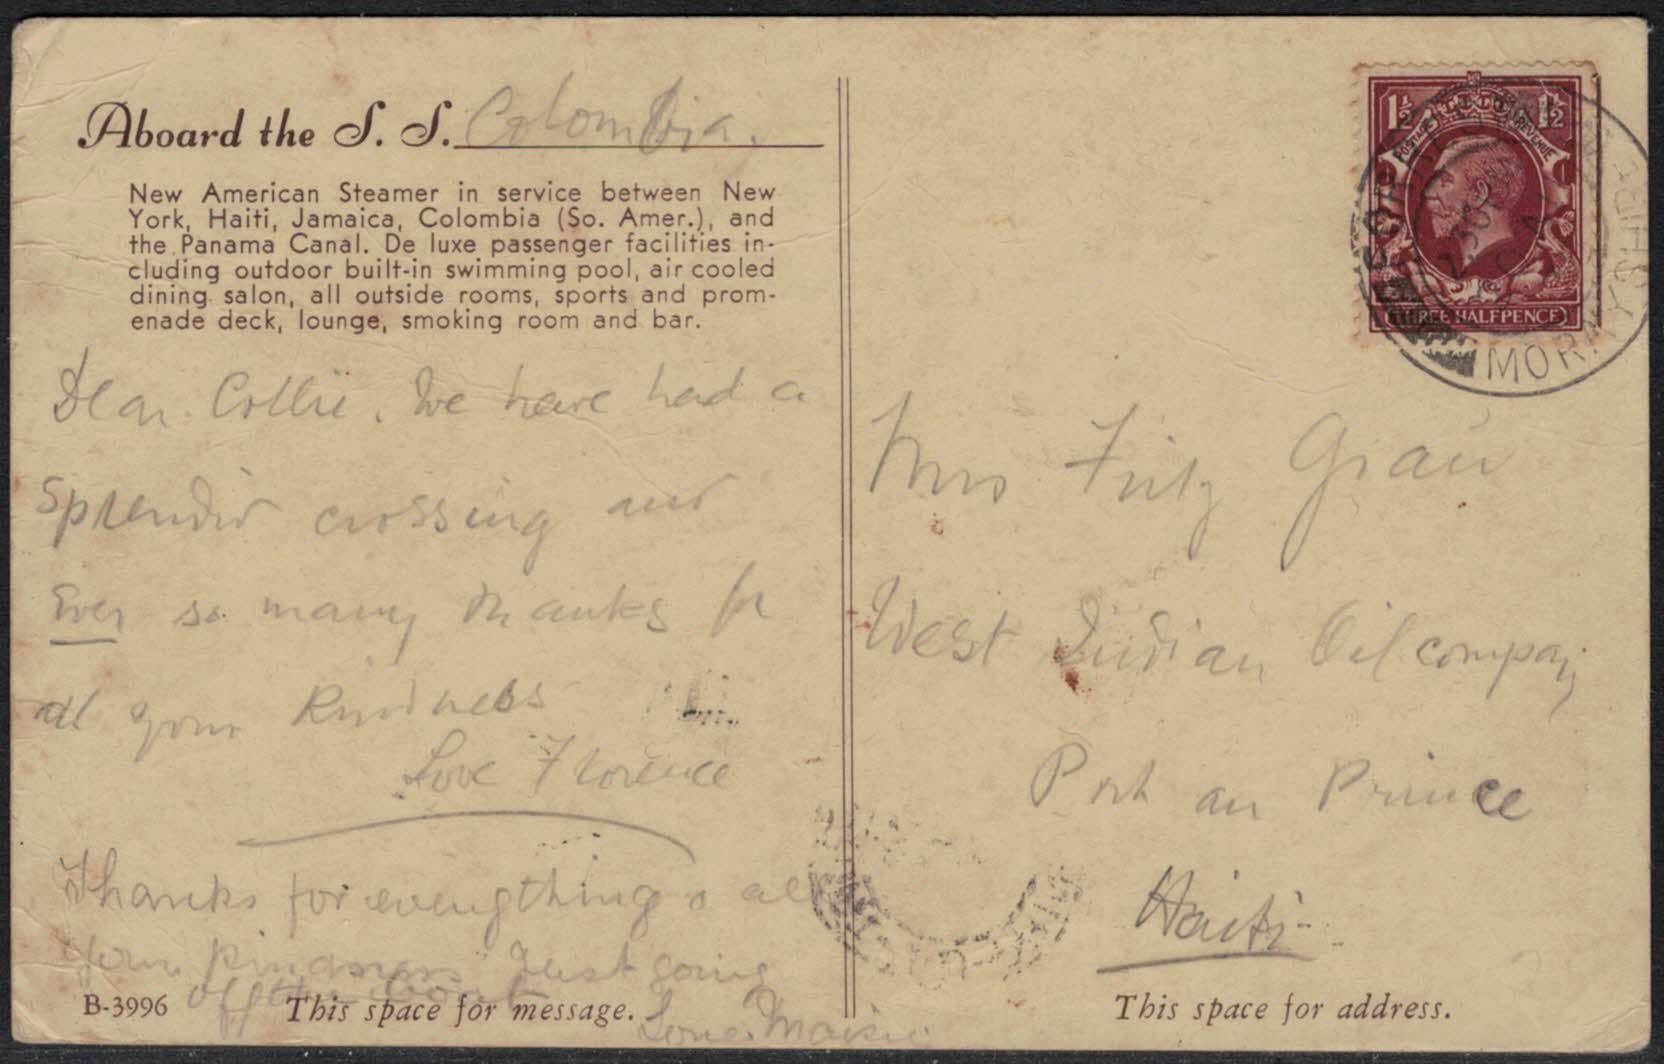 Aboard the S. S. Colombia.
New American Steamer in service between New
York, Haiti, Jamaica, Colombia (So. Amer.), and
the Panama Canal. De luxe passenger facilities in-
cluding outdoor built-in swimming pool, air cooled
dining salon, all outside rooms, sports and prom-
enade deck, lounge, smoking room and bar.
Dear Collie. We have had a
splendid crossing and
Ever so many thanks for
all your kindness
Love Florence
Thanks for everything & all
your kindness Just going
off the boat
Love Maisie
B-3996 This space for message.
1½ 1½
POSTAGE REVENUE
THREE HALFPENCE
MORAYSHIRE
Mrs Fritz Grau
West Indian Oil company
Port au Prince
Haiti
This space for address.